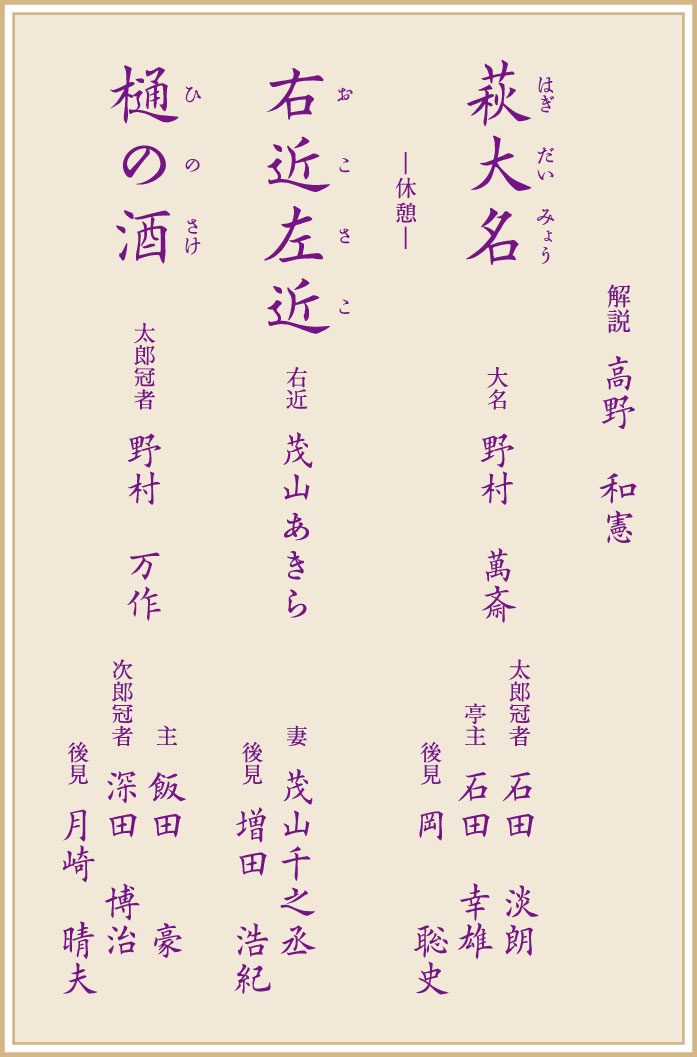 解説 高野 和憲
萩大名
はぎ だい みょう
大名 野村 萬斎
太郎冠者 石田 淡朗
亭主 石田 幸雄
後見 岡 聡史
―休憩―
右近左近
おこさこ
右近 茂山あきら
妻 茂山千之丞
後見 増田 浩紀
樋の酒
ひ の さけ
太郎冠者 野村 万作
主 飯田 豪
次郎冠者 深田 博治
後見 月崎 晴夫